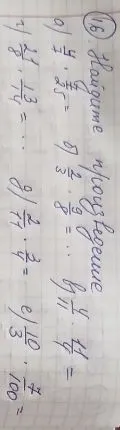 16) Найдите произведение
а) 4/7 · 7/25 = б) 2/3 · 9/8 = .. в) 4/11 · 11/4 =
г) 21/8 · 13/14 = ... д) 2/11 · 2/7 = е) 10/3 · 7/100 =